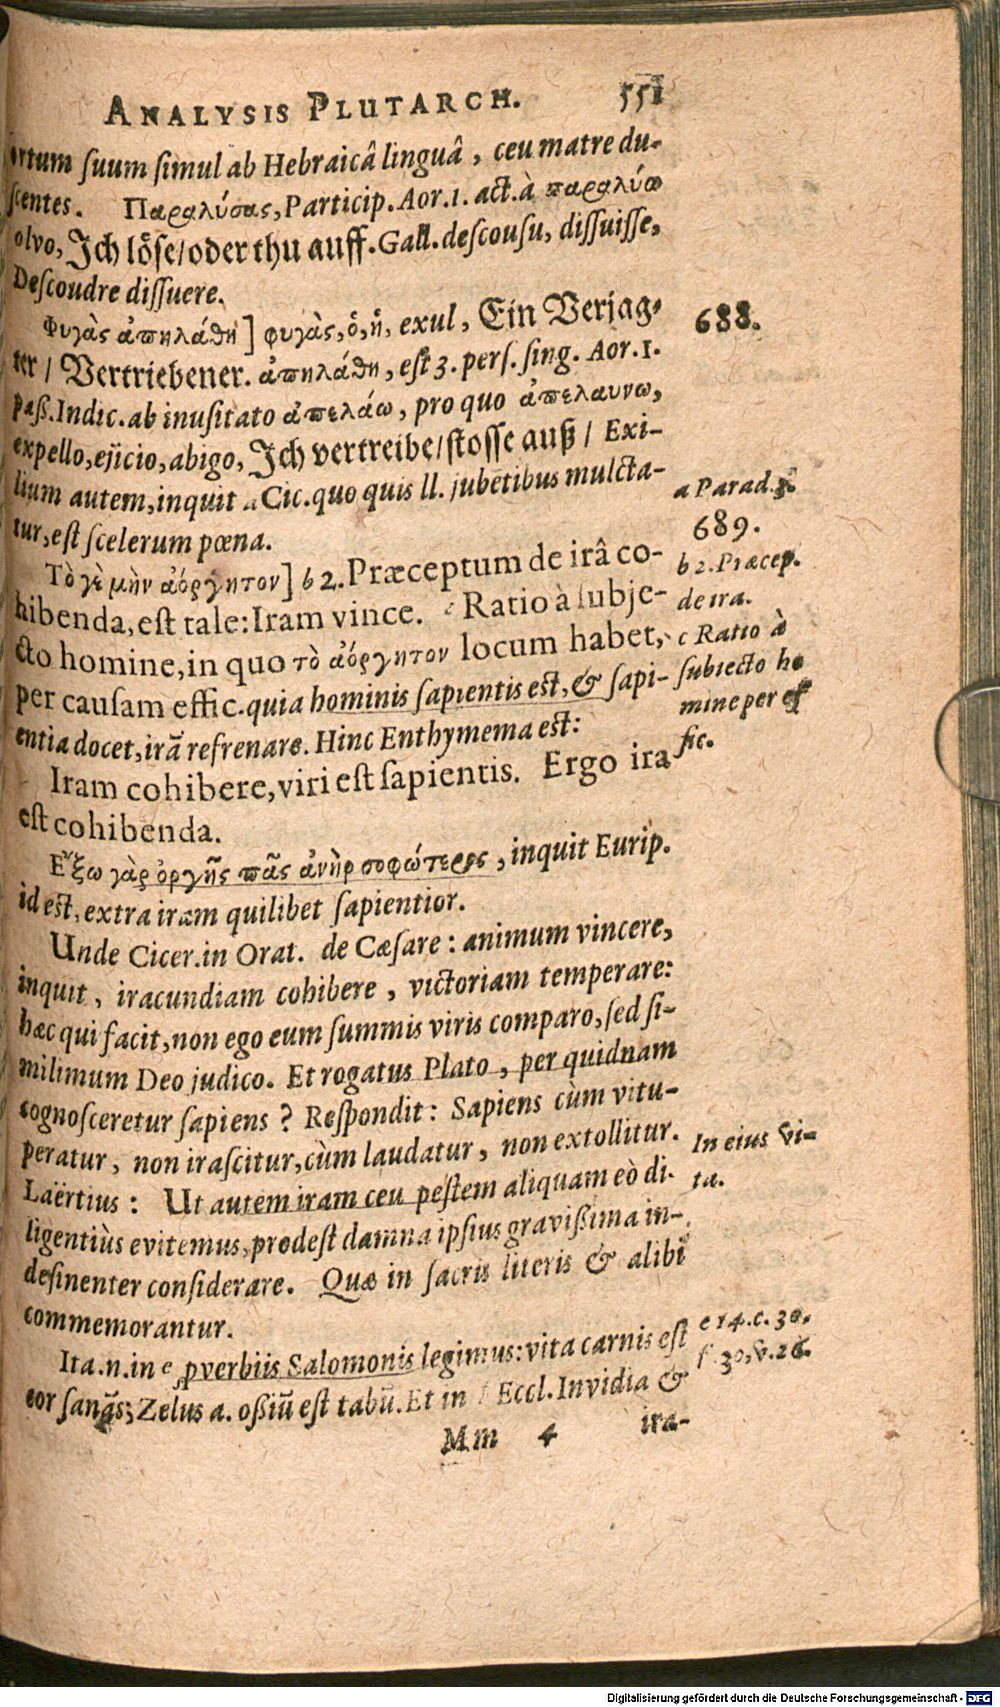 ANALYSIS PLUTARCH. 551
ortum suum simul ab Hebraicâ linguâ, ceu matre du-
scentes. Παραλύσας, Particip. Aor. 1. act. à παραλύω
olvo, Ich löse/oder thu auff. Gall. descousu, dissuisse,
Descoudre dissuere.
Φυγὰς ἀπηλάθη] φυγὰς, ὁ, ἡ, exul, Ein Verjag- 688.
ter / Vertriebener. ἀπηλάθη, est 3. pers. sing. Aor. 1.
paß. Indic. ab inusitato ἀπελάω, pro quo ἀπελαυνω,
expello, ejicio, abigo, Ich vertreibe/stosse auß / Exi-
lium autem, inquit a Cic. quo quis ll. jubētibus mulcta- a Parad.
tur, est scelerum pœna. 689.
Τὸ γὲ μὴν ἀόργητον] b 2. Præceptum de irâ co- b 2. Præcep.
hibenda, est tale: Iram vince. c Ratio à subje- de ira.
cto homine, in quo τὸ ἀόργητον locum habet, c Ratio à
per causam effic. quia hominis sapientis est, & sapi- subiecto ho
entia docet, irā refrenare. Hinc Enthymema est: mine per ef
Iram cohibere, viri est sapientis. Ergo ira fic.
est cohibenda.
Ἔξω γὰρ ὀργῆς πᾶς ἀνὴρ σοφώτερος, inquit Eurip.
id est, extra iram quilibet sapientior.
Unde Cicer. in Orat. de Cæsare: animum vincere,
inquit, iracundiam cohibere, victoriam temperare:
hæc qui facit, non ego eum summis viris comparo, sed si-
milimum Deo judico. Et rogatus Plato, per quidnam
cognosceretur sapiens? Respondit: Sapiens cùm vitu-
peratur, non irascitur, cùm laudatur, non extollitur. In eius vi-
Laërtius: Ut autem iram ceu pestem aliquam eò di- ta.
ligentiùs evitemus, prodest damna ipsius gravißima in-
desinenter considerare. Quæ in sacris literis & alibi
commemorantur.
Ita. n. in e pverbiis Salomonis legimus: vita carnis est e 14. c. 30.
cor sanās; Zelus a. oßiū est tabū. Et in f Eccl. Invidia & f 30, v. 26.
Mm 4 ira-
Digitalisierung gefördert durch die Deutsche Forschungsgemeinschaft - DFG